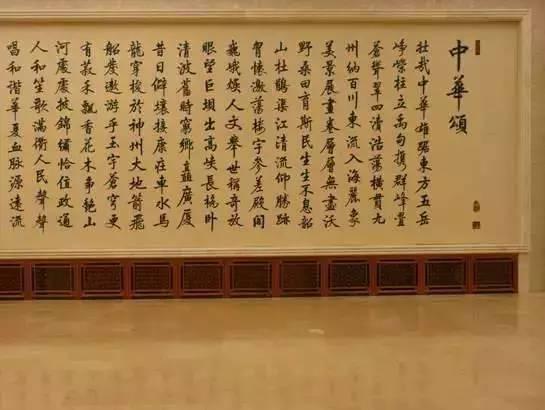 中華頌
壯哉中華雄踞東方五岳
崢嶸柱立禹甸攬群峰疊
蒼聳翠四瀆浩蕩橫貫九
州納百川東流入海麗象
美景展畫卷層層無盡沃
野桑田育斯民生生不息韶
山杜鵑渠江清流仰勝跡
懷激蕩樓宇參差殿閣
巍峨煥人文舉世稱奇放
眼望巨壩出高峽長橋臥
清波舊時窮鄉矗廣廈
昔日僻壤接康莊車水馬
龍穿梭於神州大地箭飛
船度遨游乎玉宇蒼穹更
有菽禾飄香花木爭艷山
河處處披錦繡恰值政通
人和笙歌滿衢人民聲聲
唱和諧華夏血脉源遠流